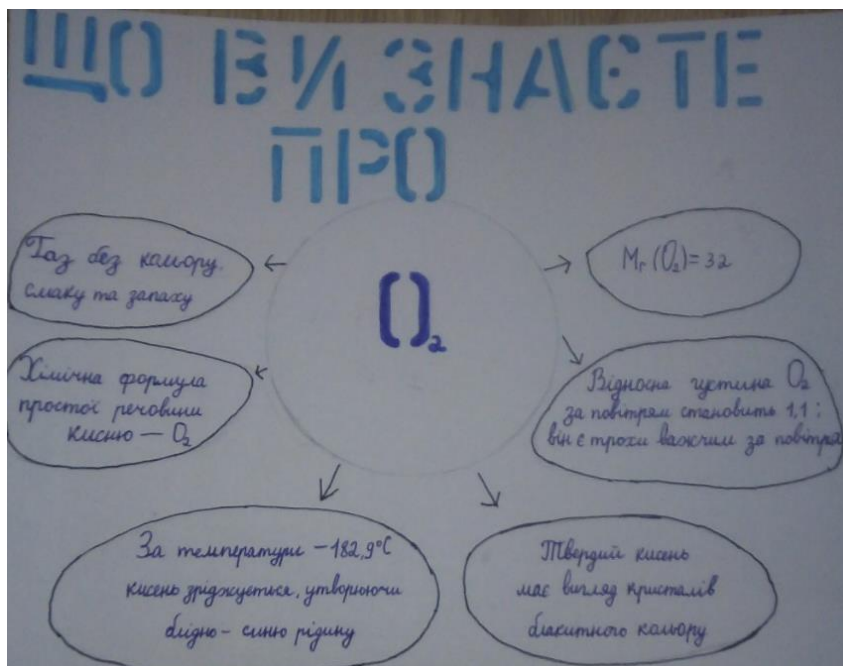 ЩО ВИ ЗНАЄТЕ
ПРО
O₂
Газ без кольору,
смаку та запаху
Mr (O₂) = 32
Хімічна формула
простої речовини
кисню — O₂
Відносна густина O₂
за повітрям становить 1,1;
він є трохи важчим за повітря
За температури –182,9°C
кисень зріджується, утворюючи
блідо – синю рідину
Твердий кисень
має вигляд кристалів
блакитного кольору